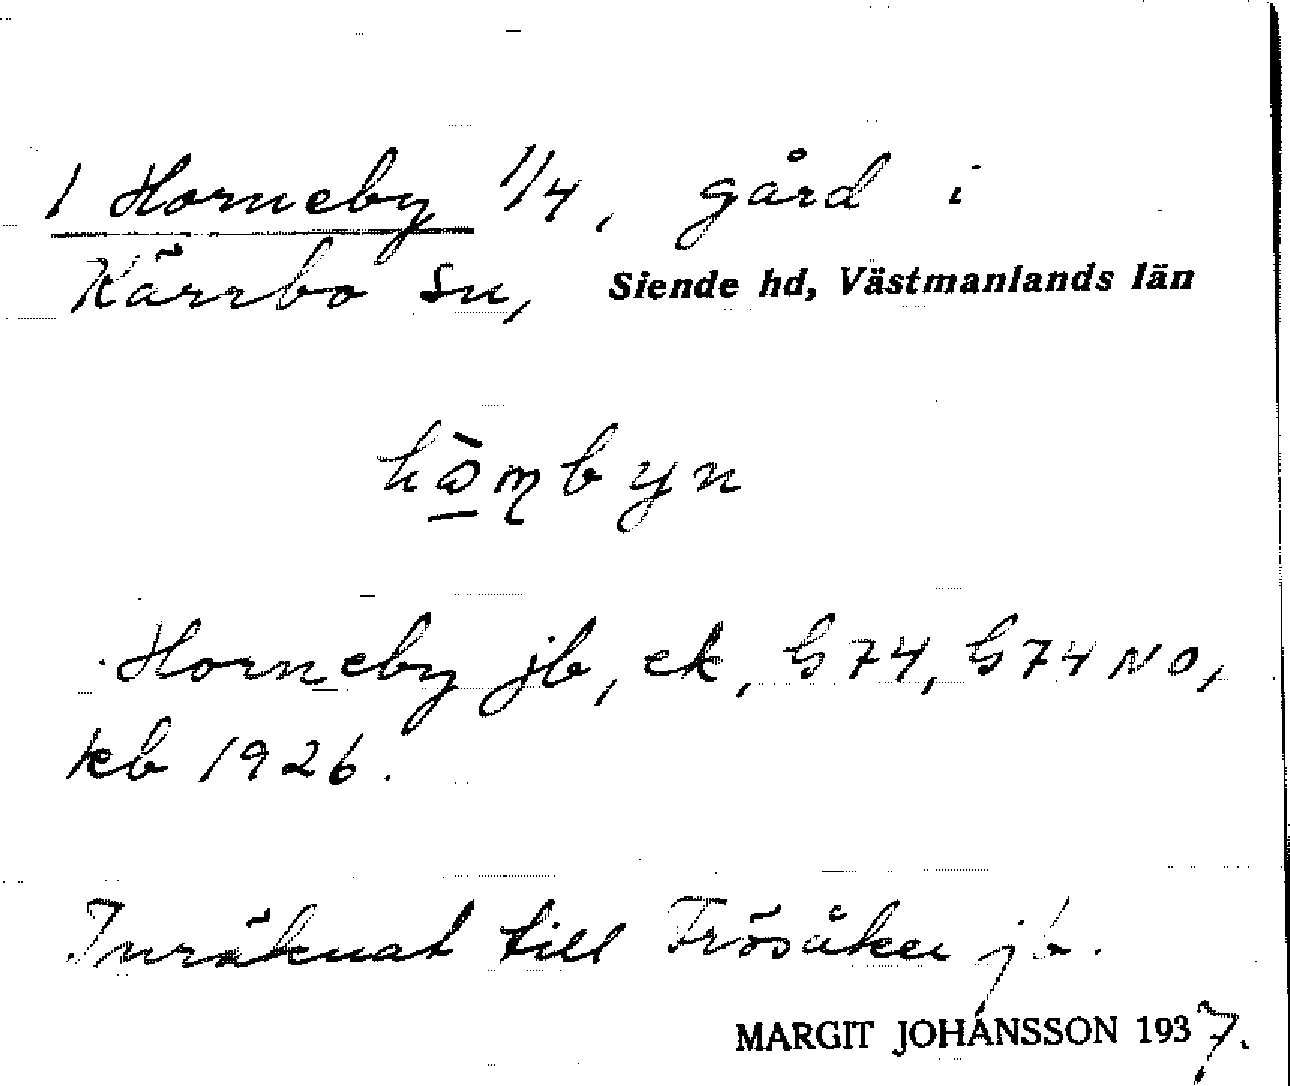 1 Horneby 1/4, gård i
Kärrbo sn, Siende hd, Västmanlands län
Horneby jb, ek, G74, G74 NO,
kb 1926.
Inräknat till Frösåker jb.
MARGIT JOHANSSON 1937.